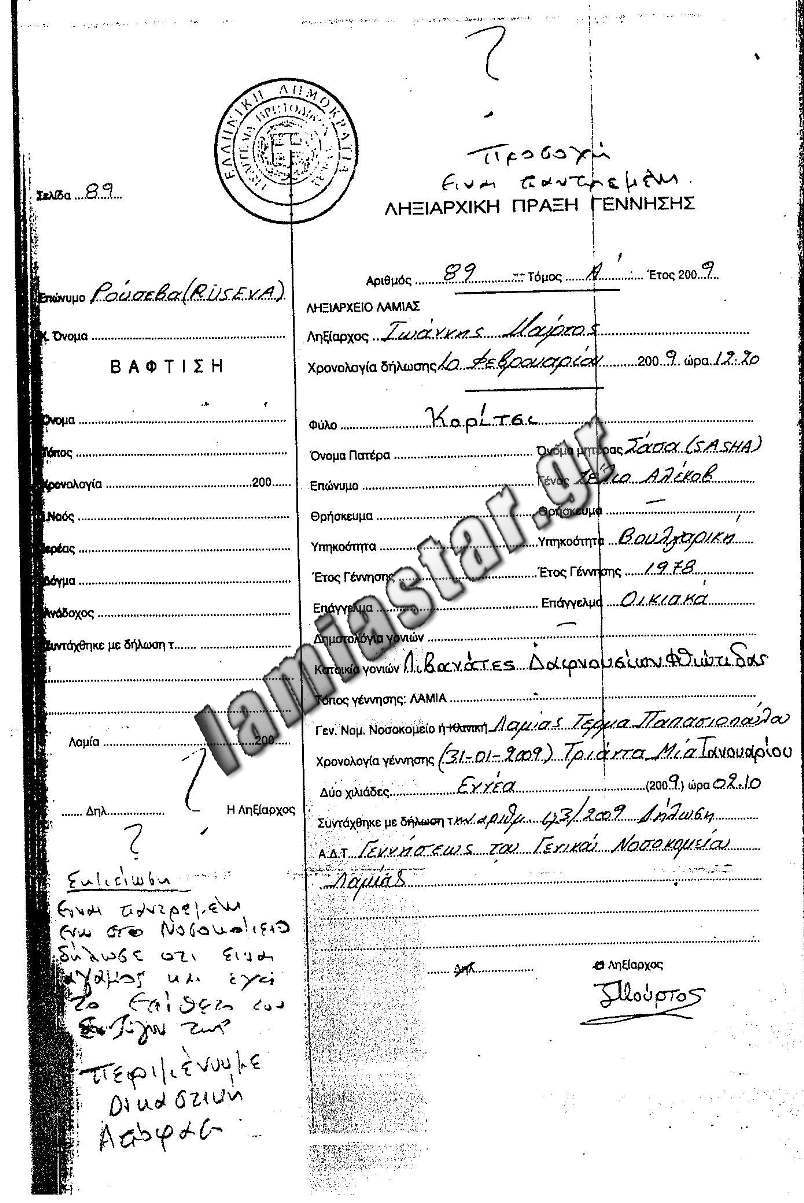 ΕΛΛΗΝΙΚΗ ΔΗΜΟΚΡΑΤΙΑ
?
Προσοχή
ειναι παντρεμένη
Σελίδα 89
ΛΗΞΙΑΡΧΙΚΗ ΠΡΑΞΗ ΓΕΝΝΗΣΗΣ
Αριθμός 89 Τόμος Α' Έτος 2009
Επώνυμο Ρούσεβα (RUSEVA)
Κ. Όνομα
ΒΑΦΤΙΣΗ
Όνομα
Τόπος
Χρονολογία 200
Ι.Ναός
Ιερέας
Δόγμα
Ανάδοχος
Συντάχθηκε με δήλωση τ
Λαμία 200
Δηλ. Η Ληξίαρχος
?
?
Σημείωση
Ειναι παντρεμένη
ενω στο Νοσοκομείο
δήλωσε οτι ειναι
αγαμος και έχει
το Επίθετο του
Συζύγου της
Περιμένουμε
Δικαστική
Απόφαση
ΛΗΞΙΑΡΧΕΙΟ ΛΑΜΙΑΣ
Ληξίαρχος Ιωάννης Μούρτος
Χρονολογία δήλωσης 10 Φεβρουαρίου 2009 ώρα 12.20
Φύλο Κορίτσι
Όνομα Πατέρα Όνομα μητέρας Σάσα (SASHA)
Επώνυμο Γένος Ζέλιο Αλέκοβ
Θρήσκευμα Θρήσκευμα —
Υπηκοότητα Υπηκοότητα Βουλγαρική
Έτος Γέννησης Έτος Γέννησης 1978
Επάγγελμα Επάγγελμα Οικιακά
Δημοτολόγια γονιών —
Κατοικία γονιών Λιβανάτες Δαφνουσίων Φθιώτιδας
Τόπος γέννησης: ΛΑΜΙΑ
Γεν. Νομ. Νοσοκομείο ή Κλινική Λαμίας Τέρμα Παπασιοπούλου
Χρονολογία γέννησης (31-01-2009) Τριάντα Μία Ιανουαρίου
Δύο χιλιάδες Εννέα (2009) ώρα 02.10
Συντάχθηκε με δήλωση την αριθμ 193/2009 Δήλωση
Α.Δ.Τ. Γεννήσεως του Γενικού Νοσοκομείου
Λαμίας
Δηλ. Ο Ληξίαρχος
Μούρτος
lamiastar.gr